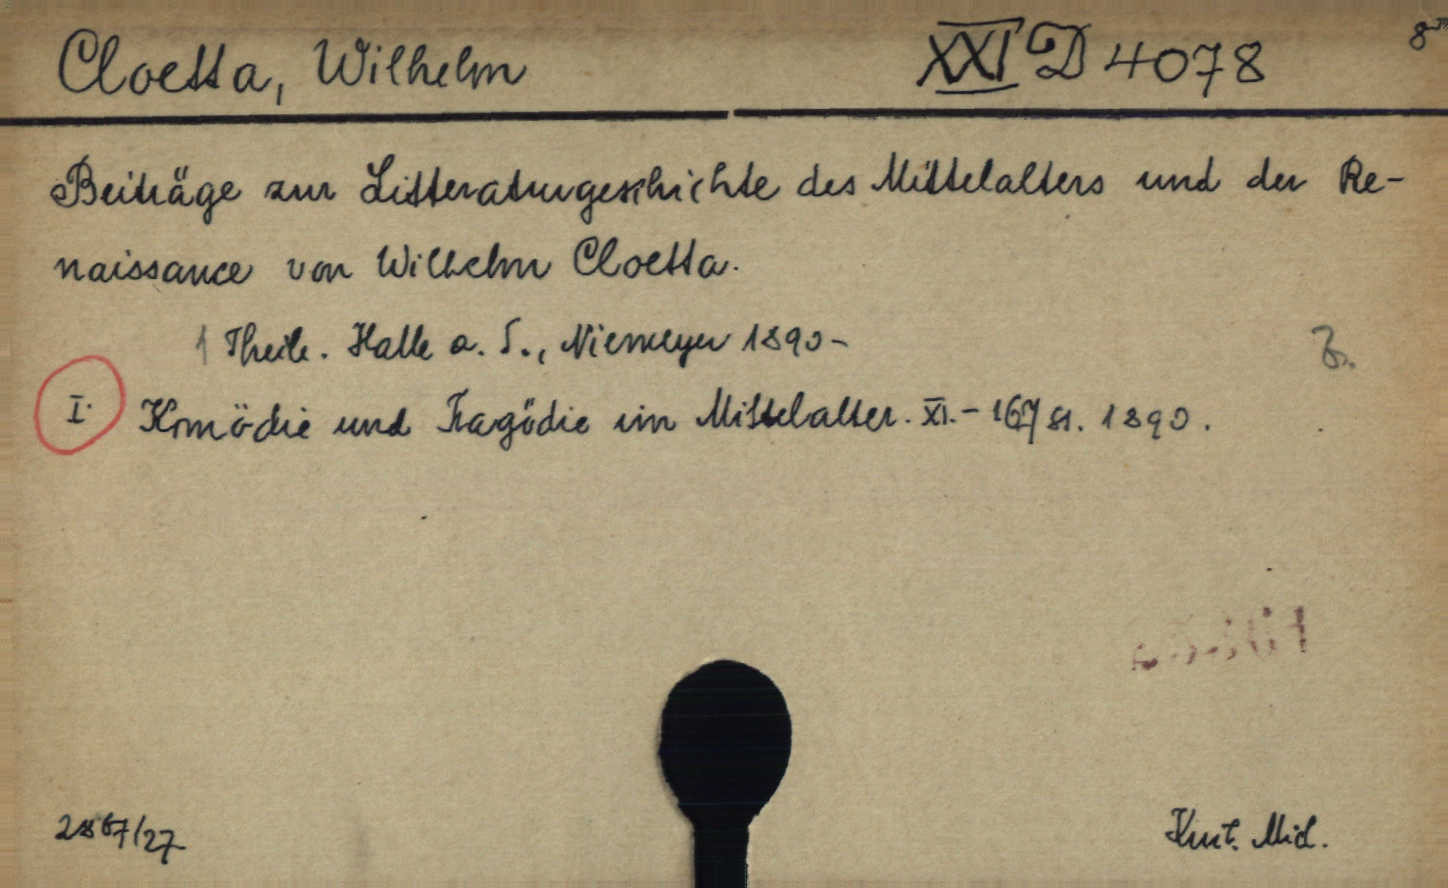 Cloetta, Wilhelm XXI D 4078 8°
Beiträge zur Litteraturgeschichte des Mittelalters und der Re-
naissance von Wilhelm Cloetta.
1 Theile. Halle a. S., Niemeyer 1890-
I. Komödie und Tragödie im Mittelalter. XI.- 167 S. 1890.
2867/27
Kut. Mid.